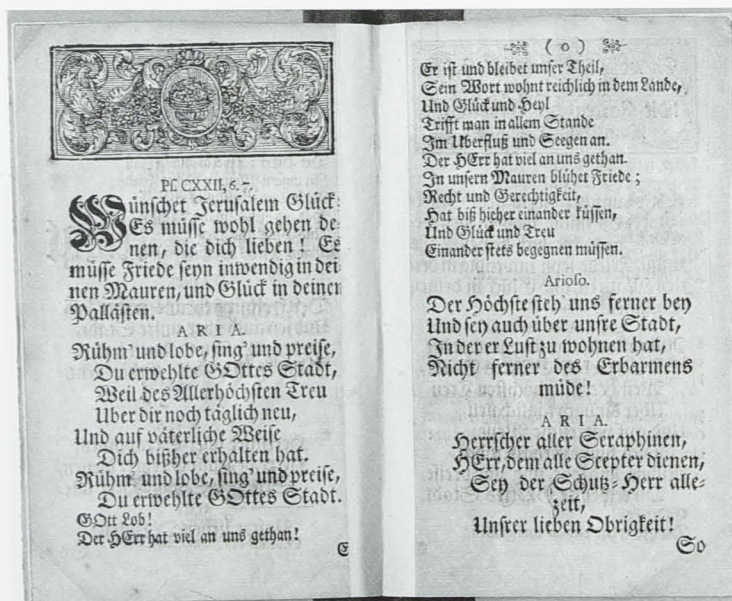 Ps. CXXII, 6. 7.
Wünschet Jerusalem Glück:
Es müsse wohl gehen de-
nen, die dich lieben! Es
müsse Friede seyn inwendig in dei-
nen Mauren, und Glück in deinen
Pallästen.
ARIA.
Rühm' und lobe, sing' und preise,
Du erwehlte GOttes Stadt,
Weil des Allerhöchsten Treu
Uber dir noch täglich neu,
Und auf väterliche Weise
Dich bißher erhalten hat.
Rühm' und lobe, sing' und preise,
Du erwehlte GOttes Stadt.
GOtt Lob!
Der HErr hat viel an uns gethan!
E
( 0 )
Er ist und bleibet unser Theil,
Sein Wort wohnt reichlich in dem Lande,
Und Glück und Heyl
Trifft man in allem Stande
Im Uberfluß und Seegen an.
Der HErr hat viel an uns gethan.
In unsern Mauren blühet Friede;
Recht und Gerechtigkeit,
Hat biß hieher einander küssen,
Und Glück und Treu
Einander stets begegnen müssen.
Arioso.
Der Höchste steh' uns ferner bey
Und sey auch über unsre Stadt,
In der er Lust zu wohnen hat,
Nicht ferner des Erbarmens
müde!
ARIA.
Herrscher aller Seraphinen,
HErr, dem alle Scepter dienen,
Sey der Schutz-Herr alle-
zeit,
Unsrer lieben Obrigkeit!
So